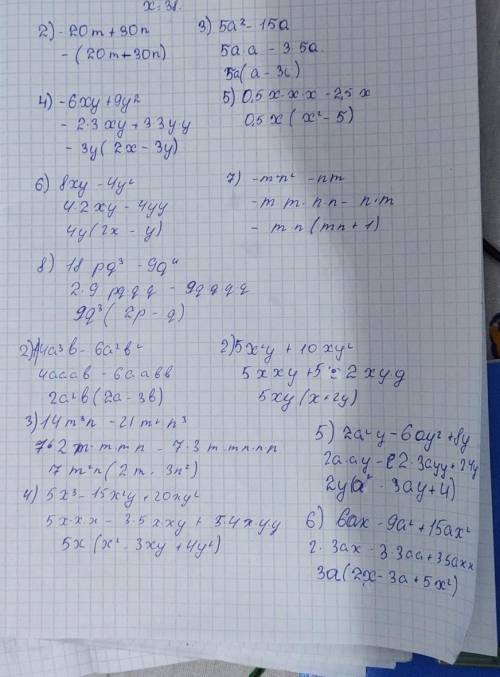 x = 31.
2) -20m + 30n
- (20m + 30n)
3) 5a² - 15a
5a a - 3 5a
5a(a - 3)
4) -6xy + 9y²
- 2·3 xy + 3 3 y·y
- 3y(2x - 3y)
5) 0,5 x·x·x - 2,5 x
0,5 x (x² - 5)
6) 8xy - 4y²
4·2xy - 4yy
4y(2x - y)
7) -m²n² - nm
-m m·n·n - n·m
- m n (mn + 1)
8) 18 pq³ - 9q⁴
2·9 pq·q·q - 9q·q·q·q
9q³(2p - q)
2) 4a³b - 6a²b²
4aaab - 6aabb
2a²b(2a - 3b)
2) 5x²y + 10xy²
5xxy + 5·2xy·y
5xy(x + 2y)
3) 14m³n - 21m²n³
7·2 m·m·m·n - 7·3 m·m·n·n·n
7 m²n(2m - 3n²)
4) 5x³ - 15x²y + 20xy²
5x·x·x - 3·5x·xy + 5·4x·yy
5x(x² - 3xy + 4y²)
5) 2a²y - 6ay² + 8y
2a·ay - 2·3ayy + 2·4y
2y(a² - 3ay + 4)
6) 6ax - 9a² + 15ax²
2·3ax - 3·3aa + 3·5axx
3a(2x - 3a + 5x²)